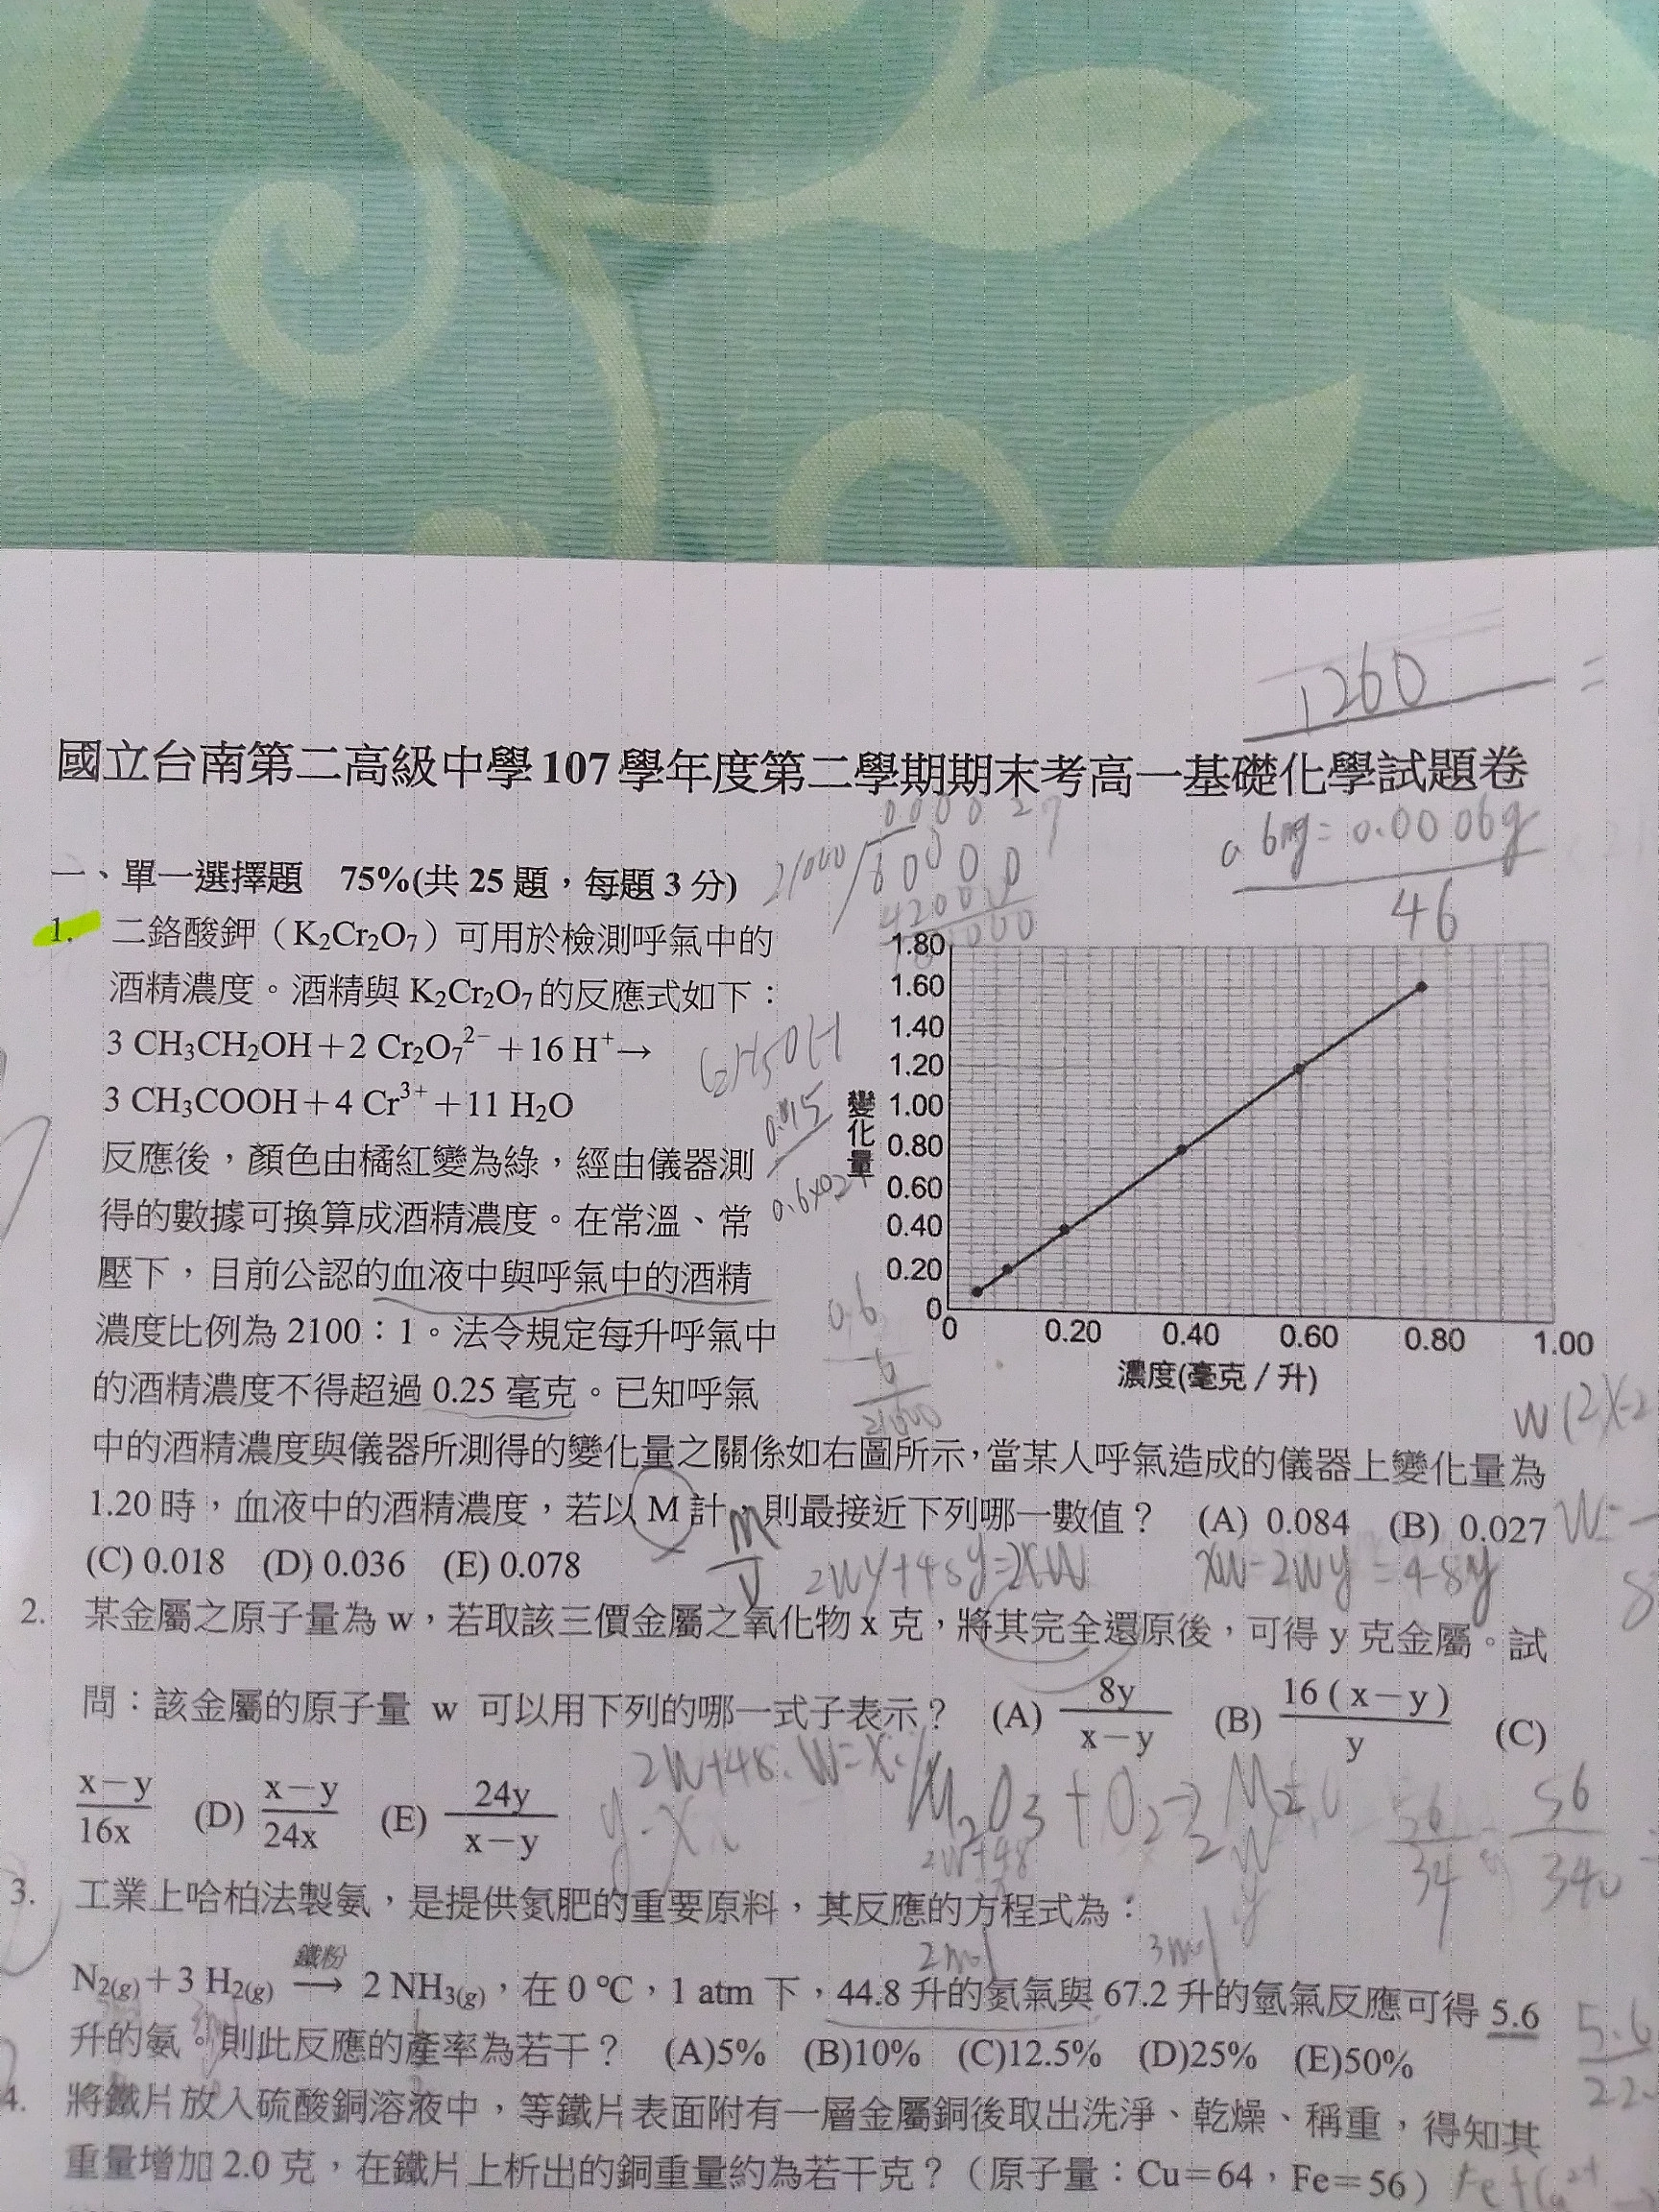 1260 =
國立台南第二高級中學107學年度第二學期期末考高一基礎化學試題卷
a 6mg = 0.0006g
46
一、單一選擇題 75%(共25題，每題3分)
21000
1. 二鉻酸鉀（K₂Cr₂O₇）可用於檢測呼氣中的
酒精濃度。酒精與 K₂Cr₂O₇的反應式如下：
3 CH₃CH₂OH＋2 Cr₂O₇²⁻＋16 H⁺→
3 CH₃COOH＋4 Cr³⁺＋11 H₂O
反應後，顏色由橘紅變為綠，經由儀器測
得的數據可換算成酒精濃度。在常溫、常
壓下，目前公認的血液中與呼氣中的酒精
濃度比例為 2100：1。法令規定每升呼氣中
的酒精濃度不得超過 0.25 毫克。已知呼氣
中的酒精濃度與儀器所測得的變化量之關係如右圖所示，當某人呼氣造成的儀器上變化量為
1.20 時，血液中的酒精濃度，若以 M 計，則最接近下列哪一數值？ (A) 0.084 (B) 0.027
(C) 0.018 (D) 0.036 (E) 0.078
1.80
1.60
1.40
1.20
1.00
0.80
0.60
0.40
0.20
0
變化量
0 0.20 0.40 0.60 0.80 1.00
濃度(毫克 / 升)
0.6
6
21000
M
V
2wy+48y=2xw
xw-2wy=48y
2. 某金屬之原子量為 w，若取該三價金屬之氧化物 x 克，將其完全還原後，可得 y 克金屬。試
問：該金屬的原子量 w 可以用下列的哪一式子表示？ (A) 8y/x－y (B) 16 ( x－y )/y (C)
x－y/16x (D) x－y/24x (E) 24y/x－y
M₂O₃+O₂→
56
34
56
340
3. 工業上哈柏法製氨，是提供氮肥的重要原料，其反應的方程式為：
2mol 3mol
N₂(g)＋3 H₂(g) 鐵粉→ 2 NH₃(g)，在 0 ℃，1 atm 下，44.8 升的氮氣與 67.2 升的氫氣反應可得 5.6
升的氨。則此反應的產率為若干？ (A)5% (B)10% (C)12.5% (D)25% (E)50%
5.6
4. 將鐵片放入硫酸銅溶液中，等鐵片表面附有一層金屬銅後取出洗淨、乾燥、稱重，得知其
重量增加 2.0 克，在鐵片上析出的銅重量約為若干克？（原子量：Cu＝64，Fe＝56）